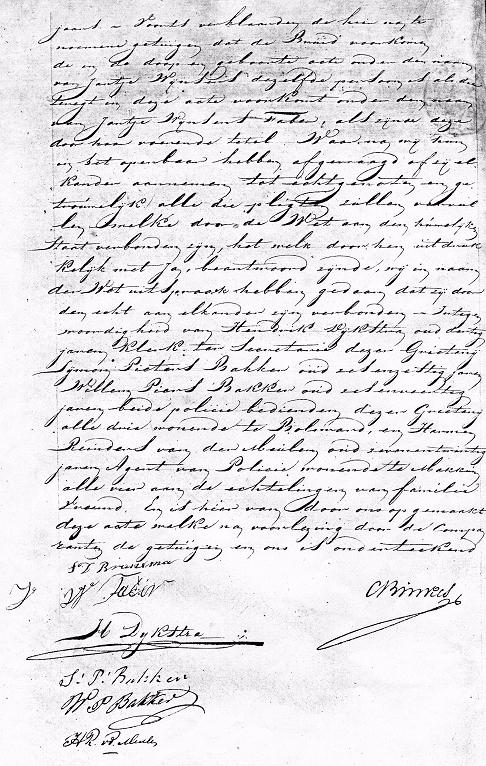 jaart – Voorts verklaarden de hier na te
noemene getuigen dat de Bruid voorkomen
de in de doop en geboorte acte onder den naam
van Jantje Wynsens dezelfde persoon is als die
thans in deze acte voorkomt onder den naam
van Jantje Wynsens Faber, als zynde deze
door haar voerende total. Waar na wy hun
in het openbaar hebben afgevraagd of zy el
kander aannemen tot echtgenoten en ge
trouwelyk alle die pligten zullen vervul
len welke door de Wet aan den huwelyken
Staat verbonden zyn, het welk door hen uitdruk
kelyk met ja, beantwoord zynde, wy in naam
der Wet uitspraak hebben gedaan dat zy door
den echt aan elkander zyn verbonden – In tegen
woordigheid van Hendrik Dykstra oud dertig
jaren, Klerk ter Secretarie dezer Grietenij
Symon Pieters Bakker oud een en zestig jaren
Willem Piers Bakker oud een en veertig
jaren beide policie bedienden dezer Grietenij
alle drie wonende te Bolsward, en Harmen
Reinders van der Meulen oud zeven en twintig
jaren Agent van Policie wonende te Makkum
alle vier aan de echtelingen van familie
Vreemd. En is hier van door ons op gemaakt
deze acte welke na voorlezing door de Compa
ranten de getuigen en ons is onderteekend
S T Bruinsma
J W Faber
C Binnes
H Dykstra
S. P. Bakker
W P Bakker
H R v d Meulen